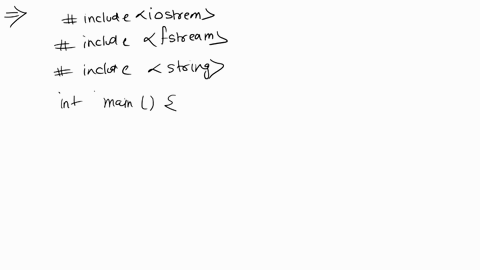 ⇒ # include <iostrem>
# include <fstream>
# include <string>
int main () {